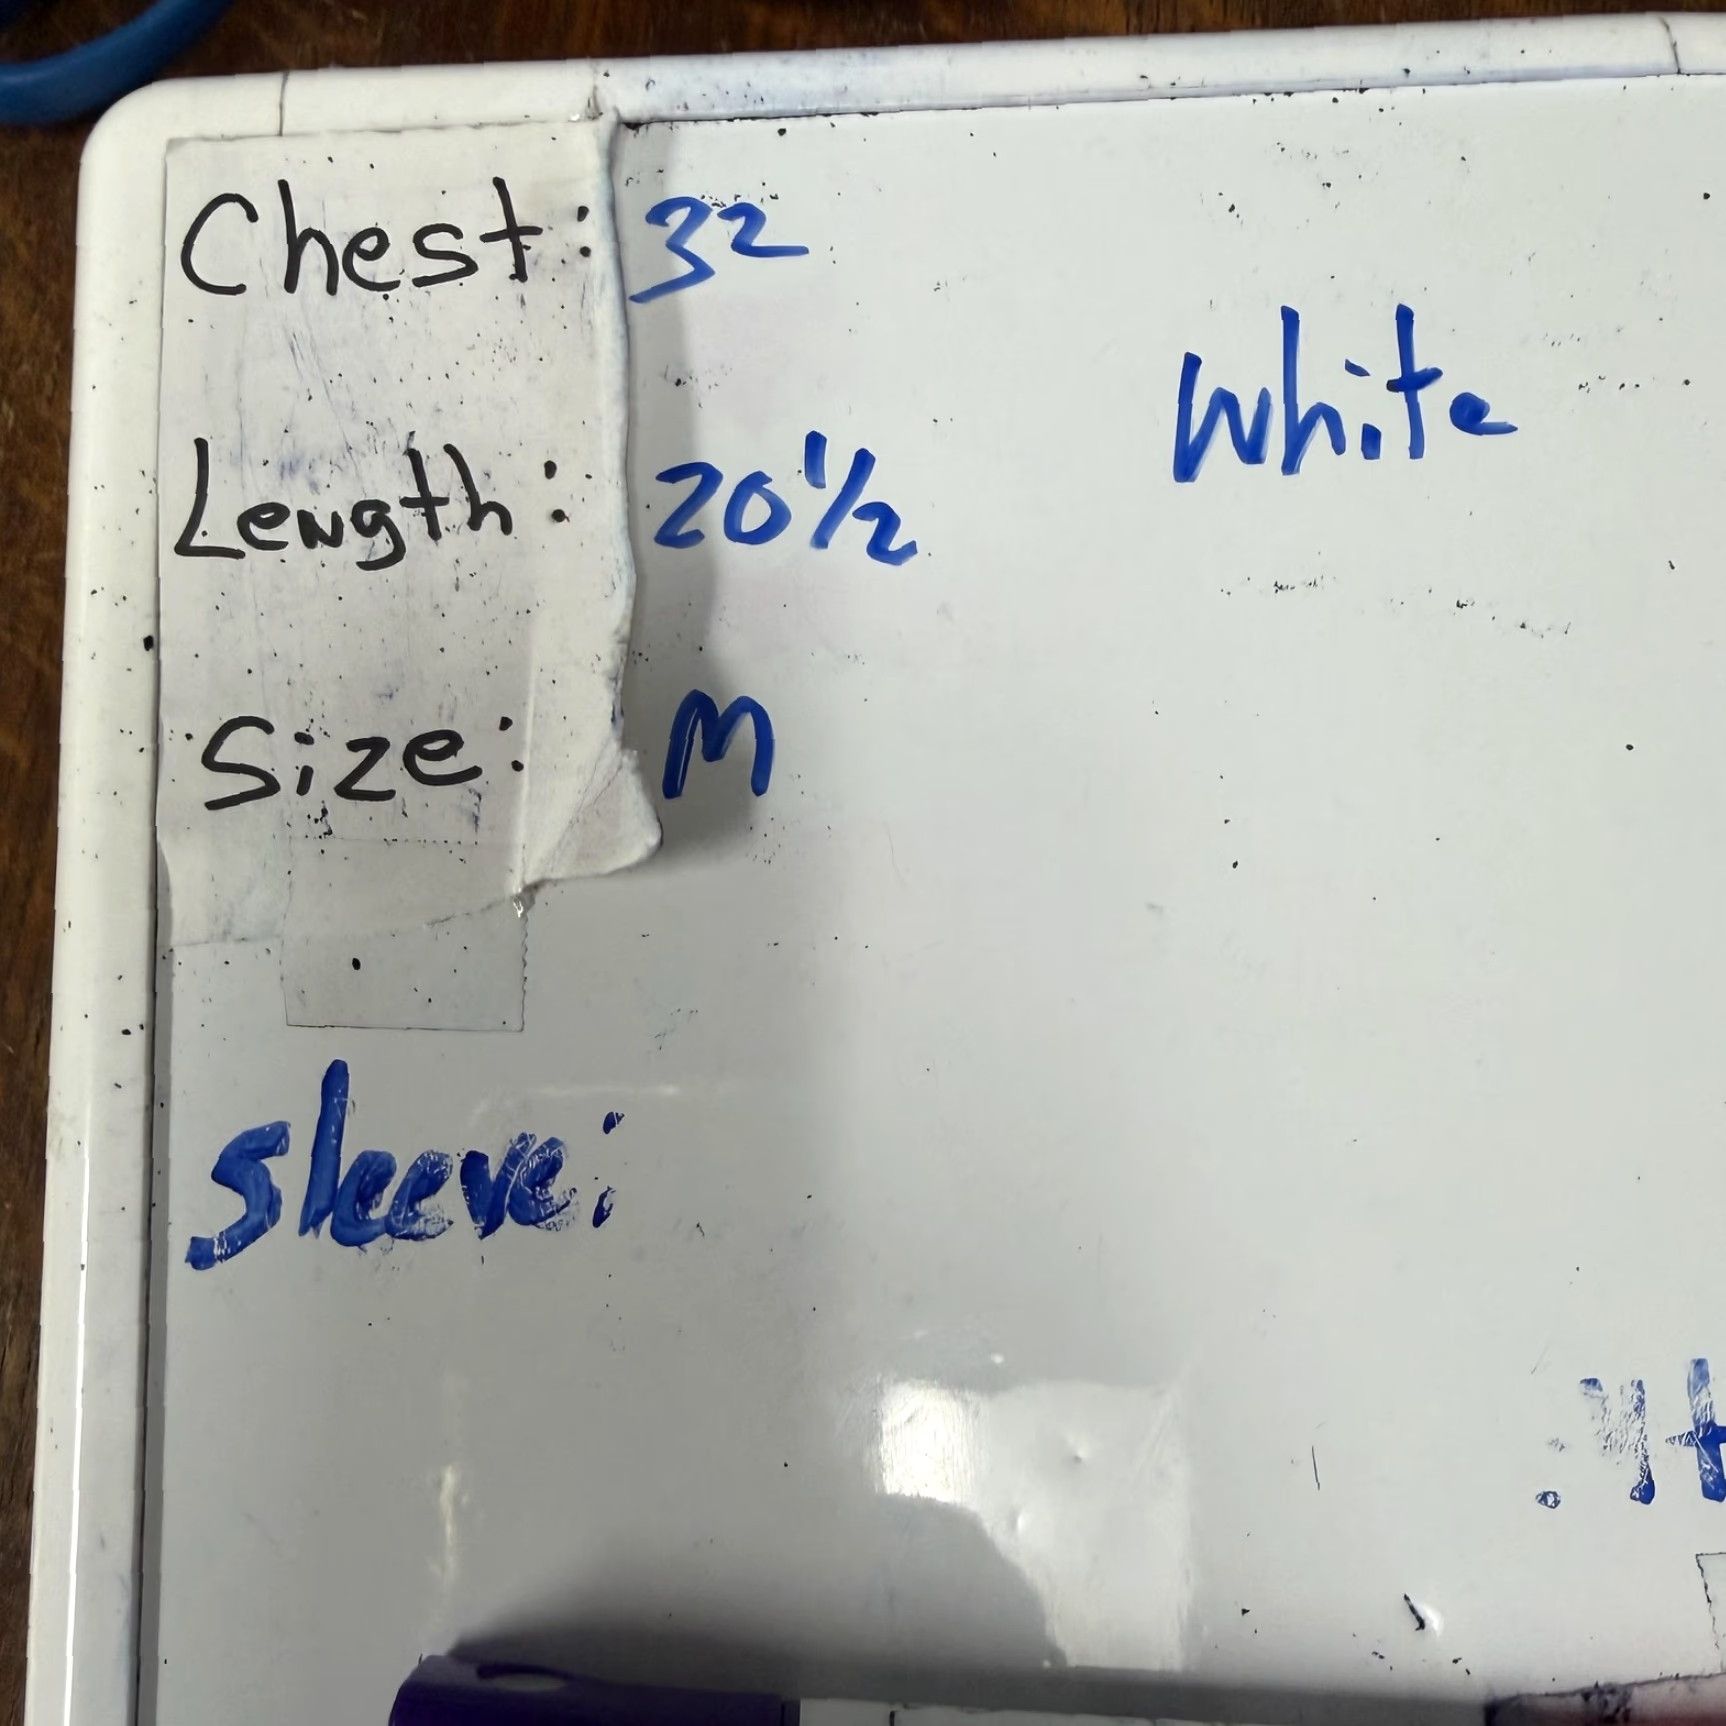 Chest: 32
White
Length: 20 1/2
Size: M
Sleeve: